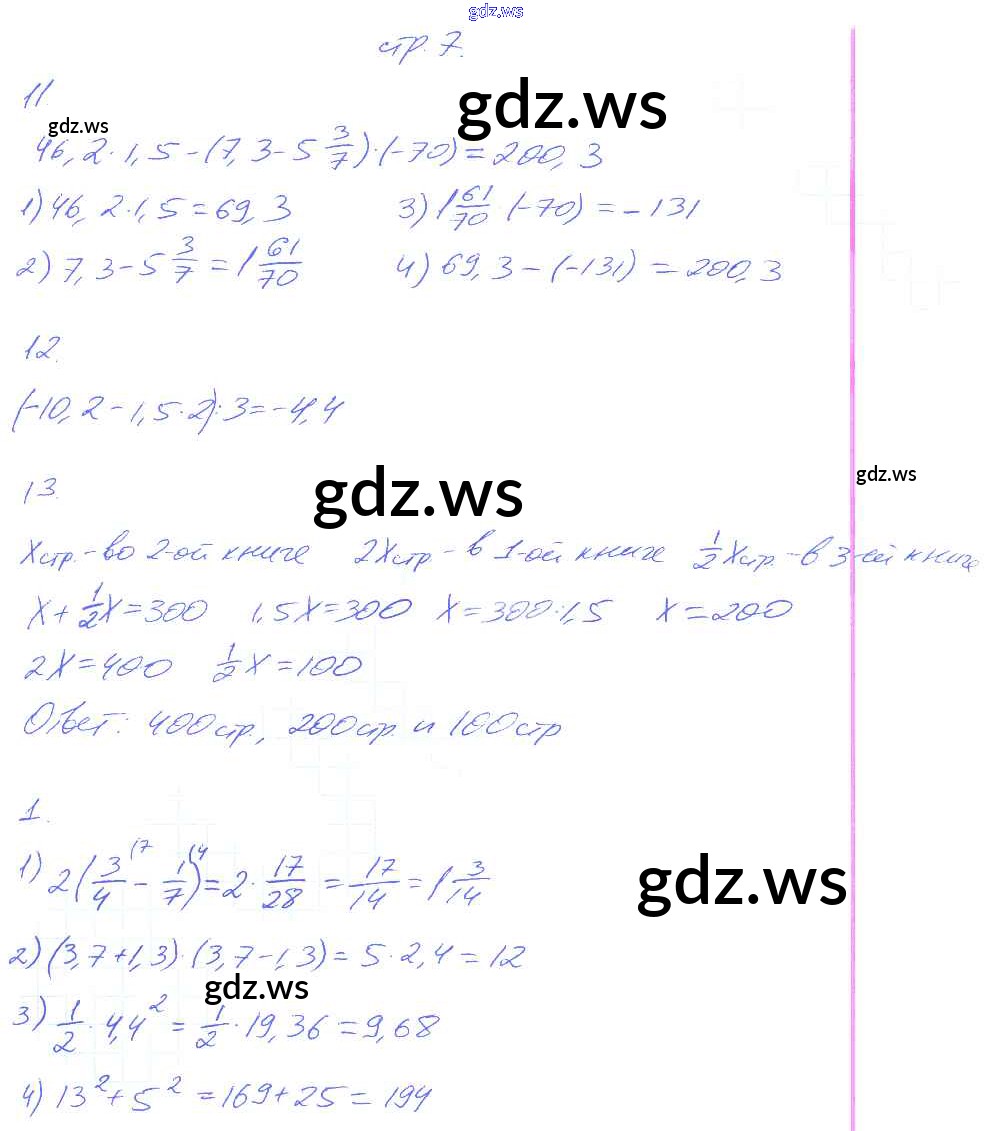 gdz.ws
стр. 7.
11.
gdz.ws
gdz.ws
46,2·1,5-(7,3-5 3/7)·(-70)=200,3
1) 46,2·1,5=69,3    3) 1 61/70·(-70)=-131
2) 7,3-5 3/7=1 61/70    4) 69,3-(-131)=200,3
12.
(-10,2-1,5·2):3=-4,4
gdz.ws
13.
gdz.ws
X стр.-во 2-ой книге    2X стр.-в 1-ой книге    1/2X стр.-в 3-ей книге
X+1/2X=300    1,5X=300    X=300:1,5    X=200
2X=400    1/2X=100
Ответ: 400 стр., 200 стр. и 100 стр
1.
gdz.ws
1) 2(3/4 (7 - 1/7 (4)=2·17/28=17/14=1 3/14
2) (3,7+1,3)·(3,7-1,3)=5·2,4=12
gdz.ws
3) 1/2·4,4²=1/2·19,36=9,68
4) 13²+5²=169+25=194